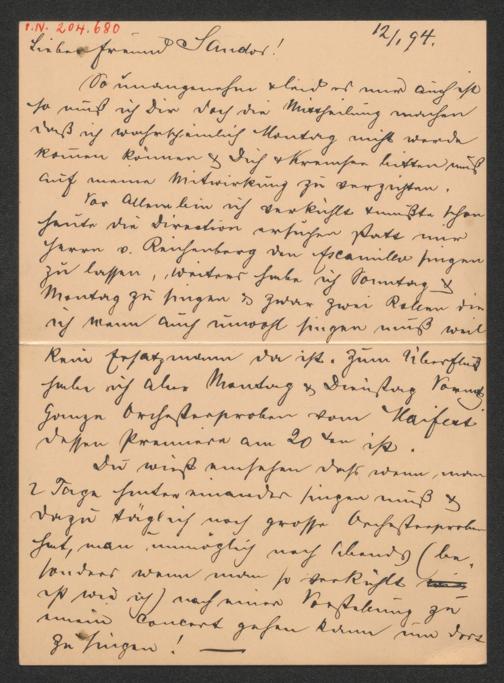 I.N. 204.680
12/1 94.
Lieber Freund Sandor!
So unangenehm & leid es mir auch ist
so muß ich Dir doch die Mittheilung machen
daß ich wahrscheinlich Montag nicht werde
kommen können & Dich & Kremser bitten muß
auf meine Mitwirkung zu verzichten.
Vor Allem bin ich verkühlt & mußte schon
heute die Direction ersuchen statt mir
Herrn v. Reichenberg den Escamillo singen
zu lassen, weiters habe ich Sonntag &
Montag zu singen & zwar zwei Rollen die
ich wenn auch unwohl singen muß weil
kein Ersatzmann da ist. Zum Überfluß
habe ich aber Montag & Dienstag Vormg
ganze Orchesterproben vom Maifest
dessen Premiere am 20ten ist.
Du wirst einsehen daß wenn man
2 Tage hintereinander singen muß &
dazu täglich noch grosse Orchesterproben
hat, man unmöglich noch Abends (be-
sonders wenn man so verkühlt
ist wie ich) nach einer Vorstellung zu
einem Concert gehen kann um dort
zu singen! —